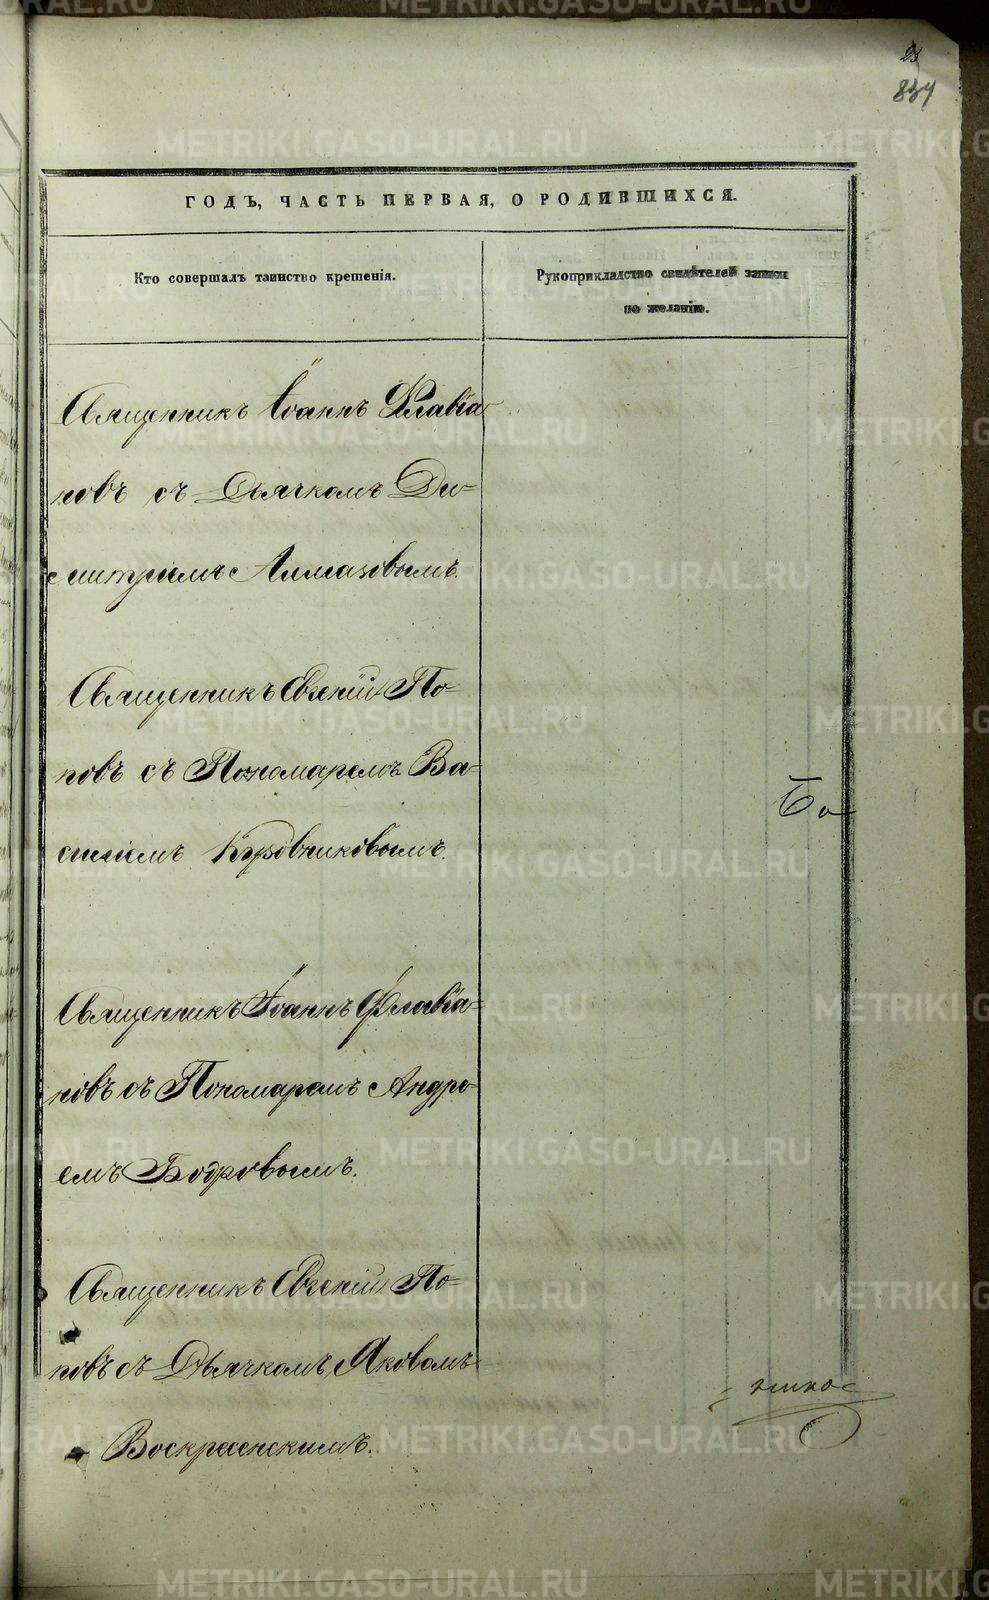 834
ГОДЪ, ЧАСТЬ ПЕРВАЯ, О РОДИВШИХСЯ.
Кто совершалъ таинство крещенія.
Рукоприкладство свидѣтелей записи
по желанію.
Священникъ Іоаннъ Флавіа
новъ съ Дьячкомъ Ди-
митріемъ Алмазовымъ.
Священникъ Евгеній По-
повъ съ Пономаремъ Ва-
силіемъ Кировниковымъ.
Священникъ Іоаннъ Флавіа-
новъ съ Пономаремъ Андре-
емъ Бодровымъ.
Священникъ Евгеній По-
повъ съ Дьячкомъ Яковомъ
Воскресенскимъ.
METRIKI.GASO-URAL.RU